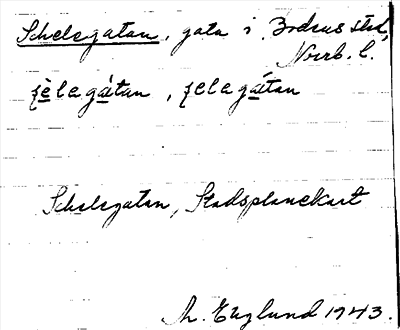 Schelegatan, gata i Bodens stad,
Norrb. l.
ʃèlegátan, ʃelegátan
Schelegatan, Stadsplanekart
M. Englund 1943.